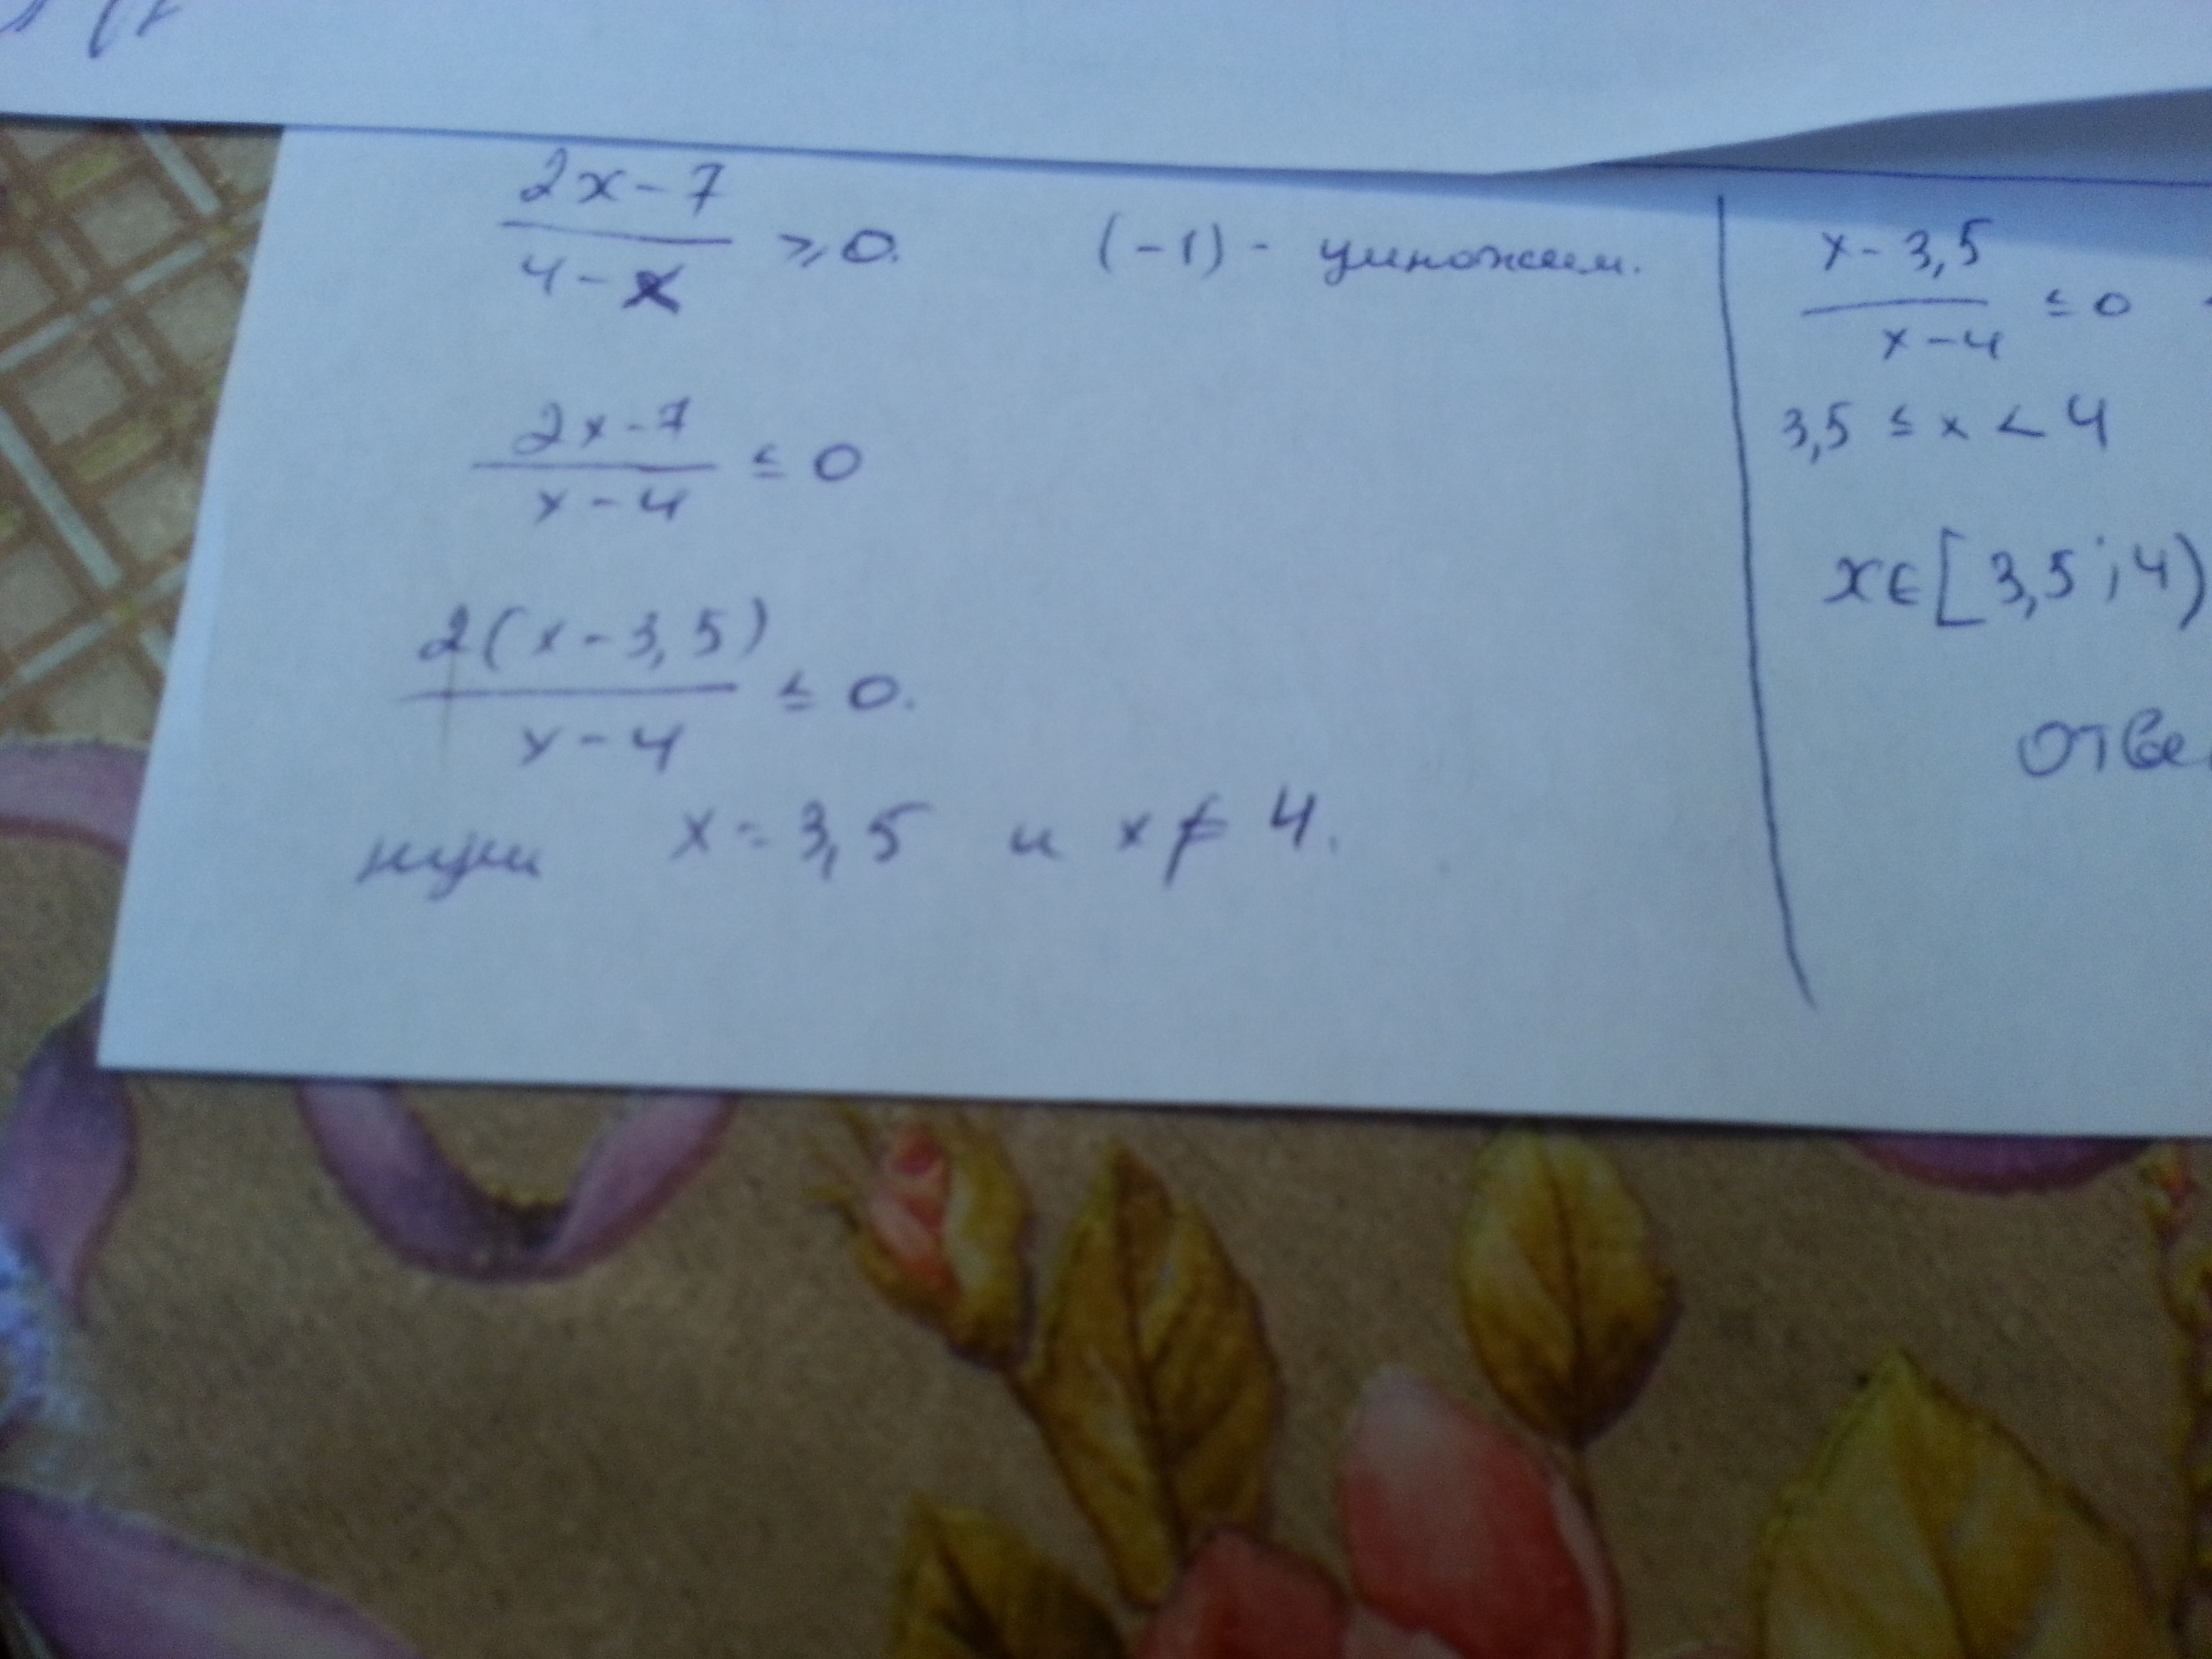 2x-7
4-x ≥0. (-1) - умножим.
2x-7
x-4 ≤ 0
2(x-3,5)
x-4 ≤ 0.
нули x=3,5 и x≠4.
x-3,5
x-4 ≤0
3,5 ≤ x < 4
x∈[3,5;4)
Отве